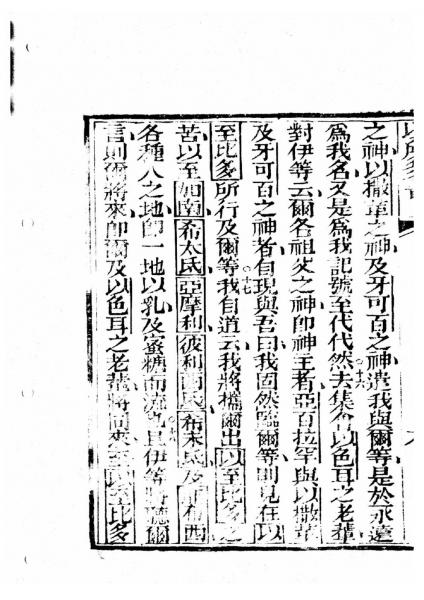 之神以撒革之神及牙可百之神遣我與爾等是於永遠
爲我名又是爲我記號至代代然十六去集會以色耳之老輩
對伊等云爾各祖父之神卽神主者亞百拉罕與以撒革
及牙可百之神者自現與吾曰我固然臨爾等則見在以
至比多所行及爾等十七我自道云我將攜爾出以至比多之
苦以至加南希太氏亞摩利彼利西氏希未氏及耶布西
各種人之地卽一地以乳及蜜糖而流十八且伊等將聽爾
言則爾將來卽爾及以色耳之老輩將同來至以至比多